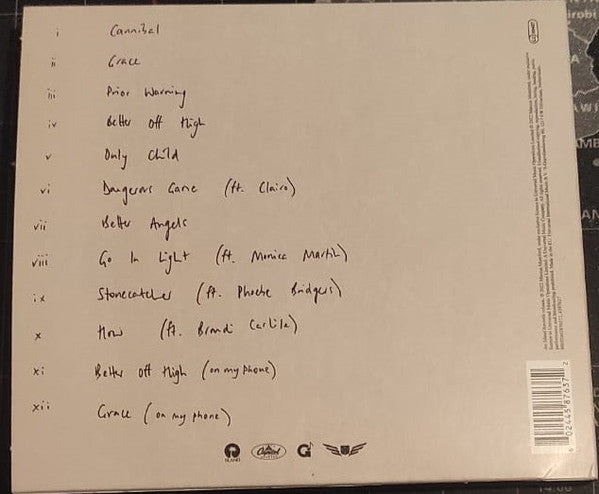 i Cannibal
ii Grace
iii Prior Warning
iv Better Off High
v Only Child
vi Dangerous Game (ft. Clairo)
vii Better Angels
viii Go In Light (ft. Monica Martin)
ix Stonecatcher (ft. Phoebe Bridgers)
x How (ft. Brandi Carlile)
xi Better Off High (on my phone)
xii Grace (on my phone)
ISLAND
Capitol
G
6 02445 87637 2